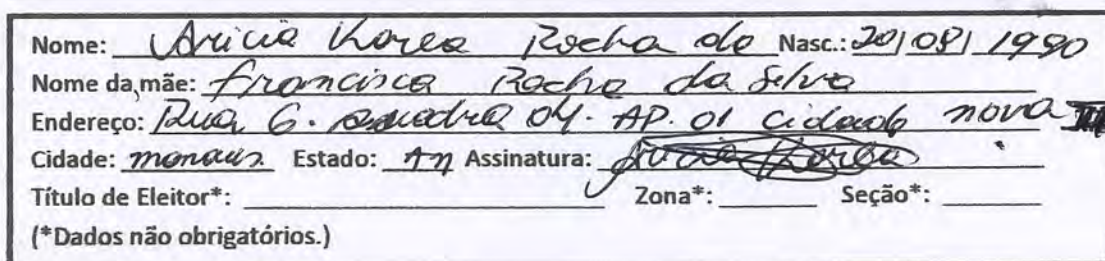 Nome: Aricia Korea Rocha do Nasc.: 20/08/1990
Nome da mãe: Francisca Rocha da Silva
Endereço: Rua 6. quadra 04. AP. 01 cidade nova III
Cidade: manaus Estado: AM Assinatura: Aricia Korea
Título de Eleitor*: Zona*: Seção*:
(*Dados não obrigatórios.)